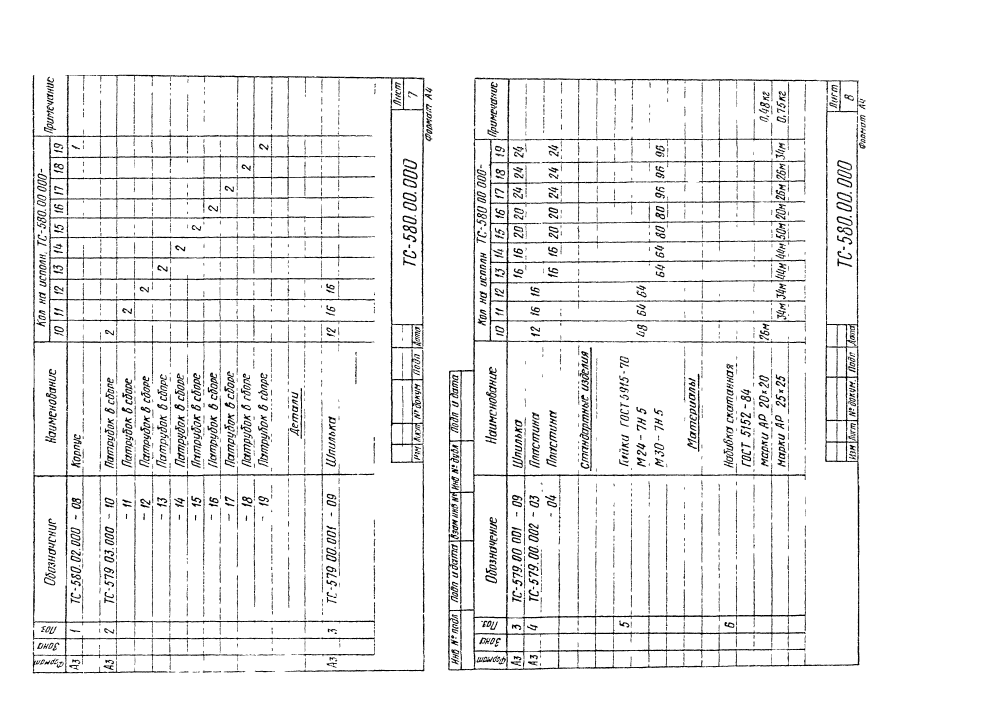 Формат Зона Поз Обозначение Наименование Кол на исполн. ТС-580.00 000- Примечание
10 11 12 13 14 15 16 17 18 19
А3 1 ТС-580.02.000 - 08 Корпус 1
А3 2 ТС-579 03.000 - 10 Патрубок в сборе 2
- 11 Патрубок в сборе 2
- 12 Патрубок в сборе 2
- 13 Патрубок в сборе 2
- 14 Патрубок в сборе 2
- 15 Патрубок в сборе 2
- 16 Патрубок в сборе 2
- 17 Патрубок в сборе 2
- 18 Патрубок в сборе 2
- 19 Патрубок в сборе 2
Детали
А3 3 ТС-579 00.001 - 09 Шпилька 12 16 16
Изм Лист № докум Подп Дата
ТС-580.00.000
Лист
7
Формат А4
Инв № подл Подп и дата Взам инв № Инв № дубл Подп и дата
Формат Зона Поз. Обозначение Наименование Кол на исполн ТС-580 00 000- Примечание
10 11 12 13 14 15 16 17 18 19
А3 3 ТС-579.00 001 - 09 Шпилька 16 16 20 20 24 24 24
А3 4 ТС-579.00.002 - 03 Пластина 12 16 16
- 04 Пластина 16 16 20 20 24 24 24
Стандартные изделия
5 Гайки ГОСТ 5915-70
М24 - 7Н 5 48 64 64
М30 - 7Н.5 64 64 80 80 96 96 96
Материалы
6 Набивка скатанная
ГОСТ 5152 - 84
марки АР 20×20 26м 0,48кг
марки АР 25×25 34м 34м 44м 44м 50м 20м 26м 26м 34м 0,75кг
Изм Лист № докум. Подп Дата
ТС-580.00.000
Лист
8
Формат А4